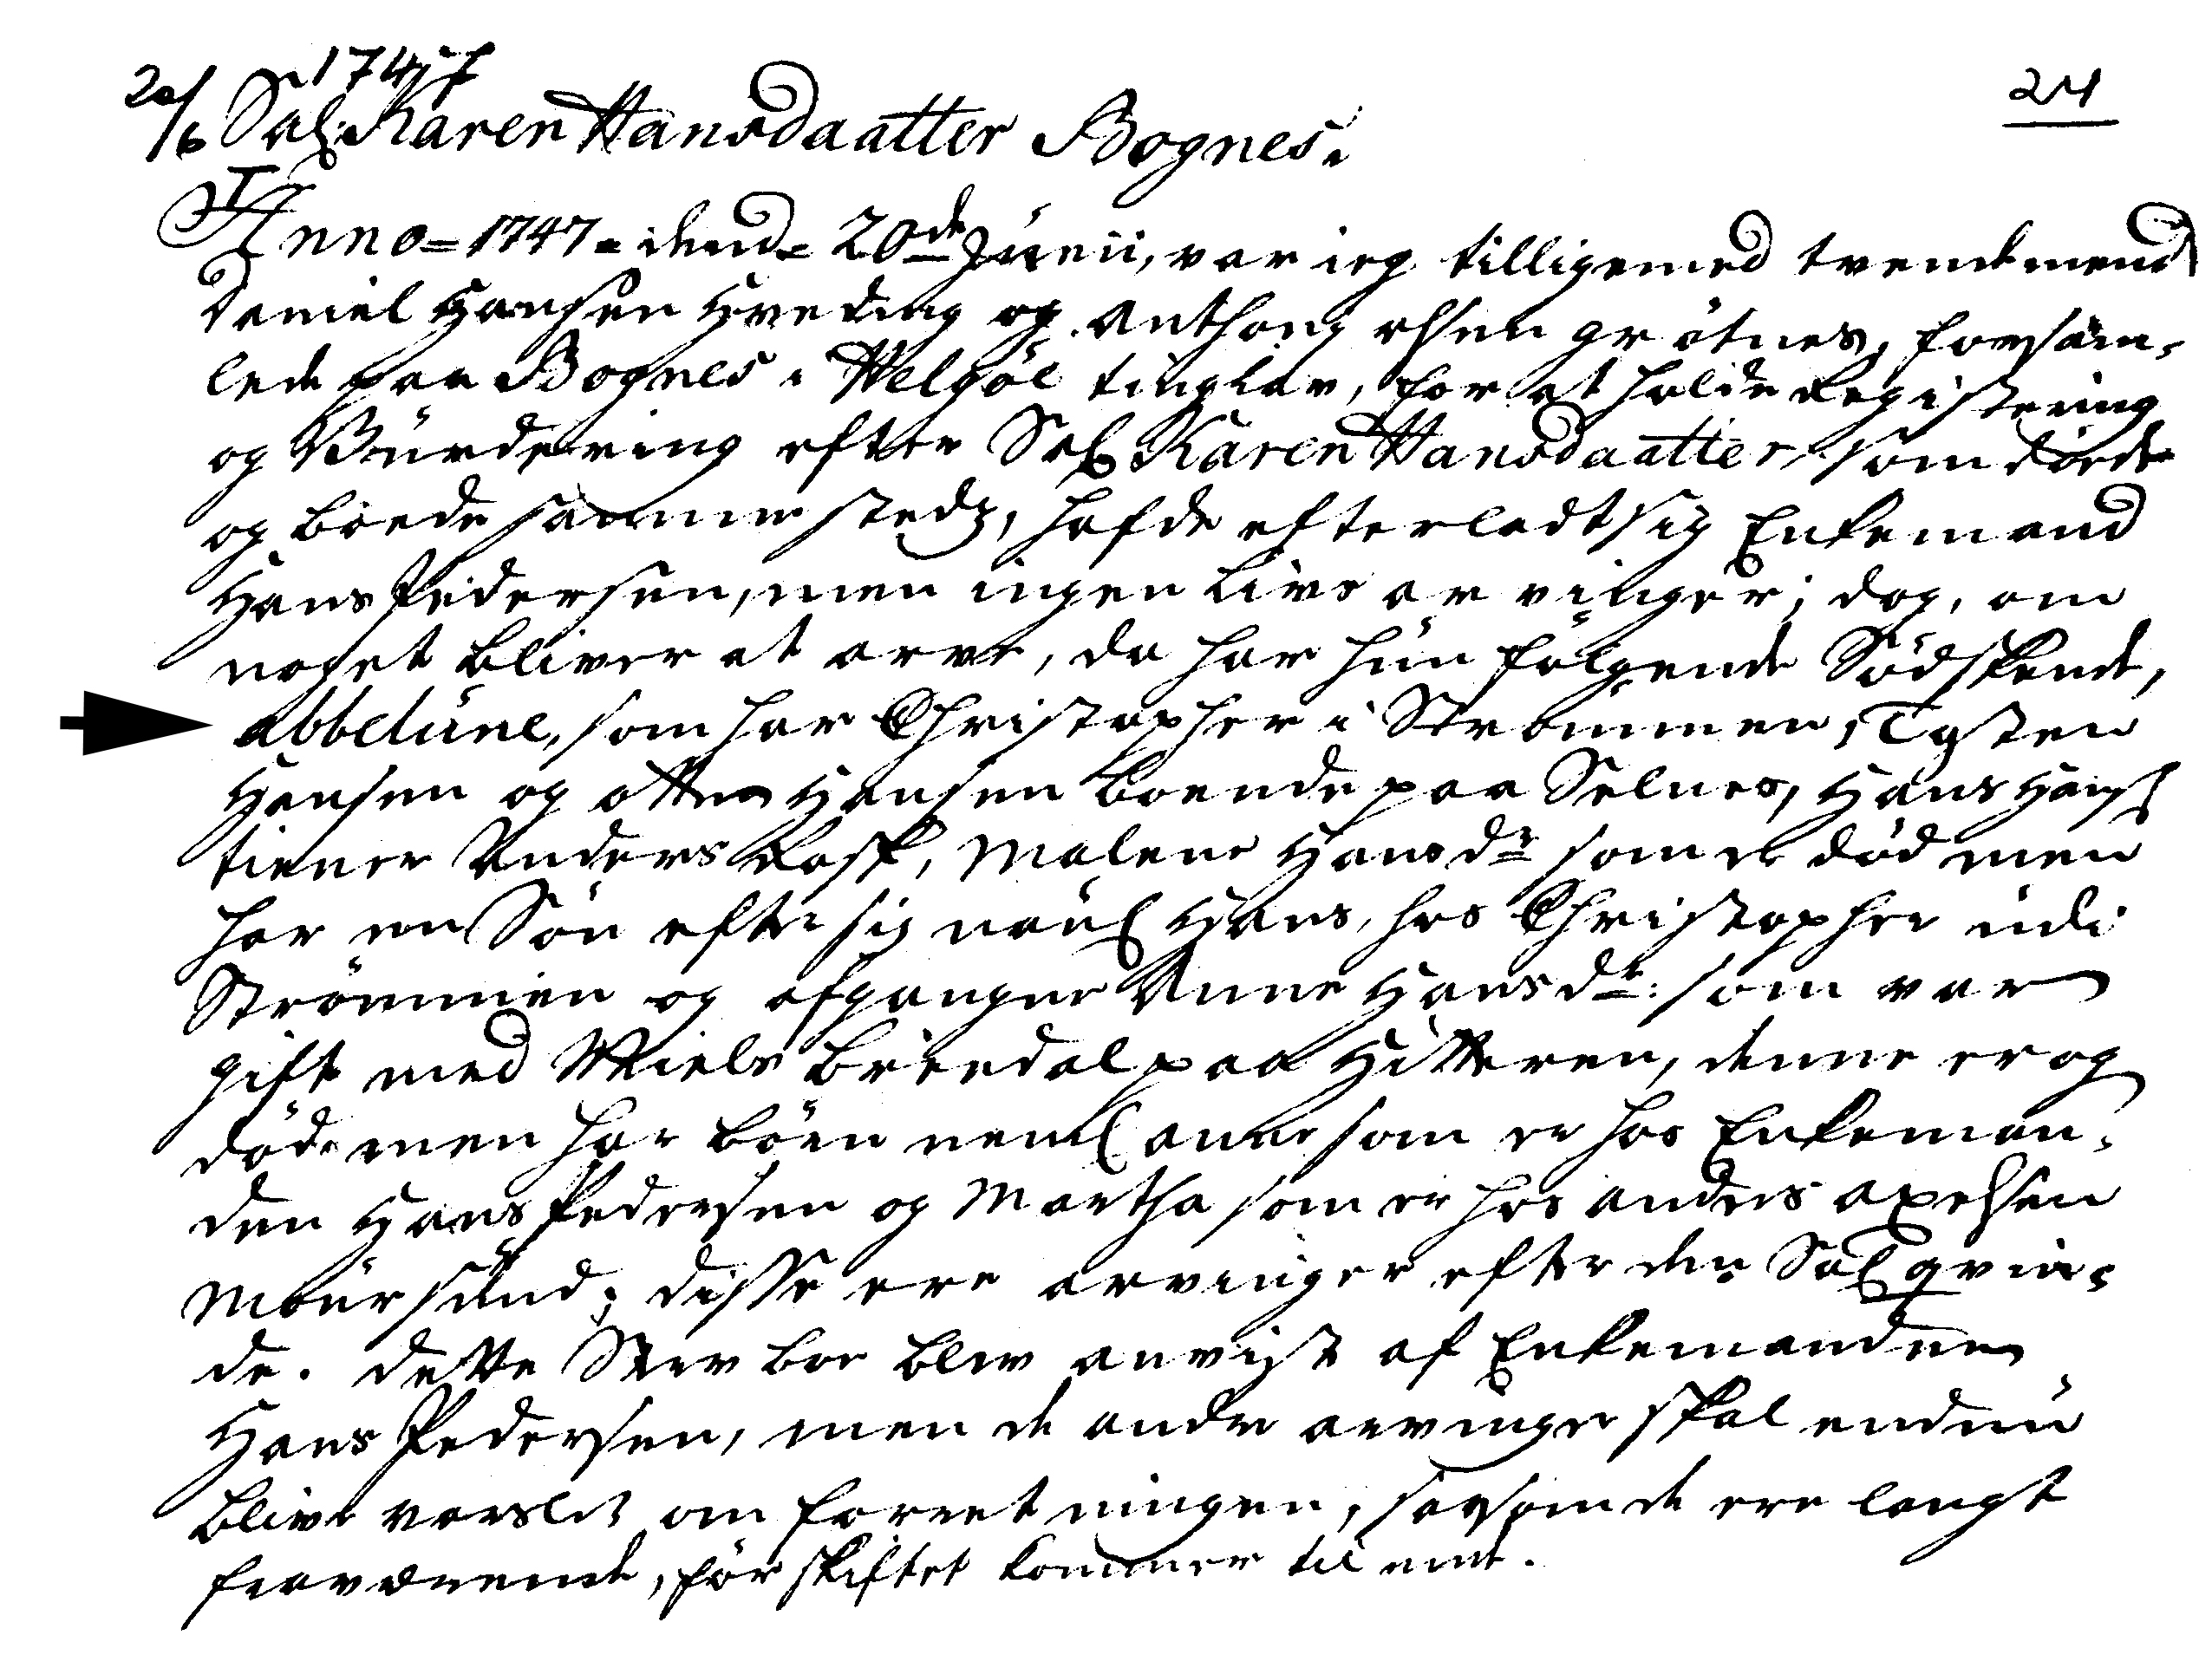 20/6 1747
24
Sal: Karen Hansdaatter Bognes.
Anno = 1747 = dend = 20de Junii, var ieg tilligemed tvende mend
Daniel Hansen Hveding og Anthoni olsen grötnes, forsam-
lede paa Bognes i Helgöe tinglav, for at holde Registering
og Vurdering efter Sal Karen Hansdaatter, som döede
og böede sammestedz, hafde efterladt sig Enkemand
Hans Pedersen, men ingen livs arvinger; dog, om
noget bliver at arve, da har hun fölgende Södskende,
abbelüne, som har Christopher i Strömmen, Tosten
Hansen og otter Hansen boende paa Selnes, Hans Hans
tiener Anders Rask, Malene Hans dr som er död men
har en Sön efter sig naul Hans, hos Christopher udi
Strömmen og afgangne Anne Hans dr: som var
gift med Niels breedal paa Hitteren, denne er og
död men har börn neml anne som er hos Enkeman-
den Hans Pedersen og Martha som er hos anders axelsen
Maursund; disse ere arvinger efter den Sal qvin-
de. dette Sterboe blev anvist af Enkemanden
Hans Pedersen, men de andre arvinger skal endnu
blive varslet om forretningen, saasom de ere langt
fraværende, för skiftet kommer til ende.